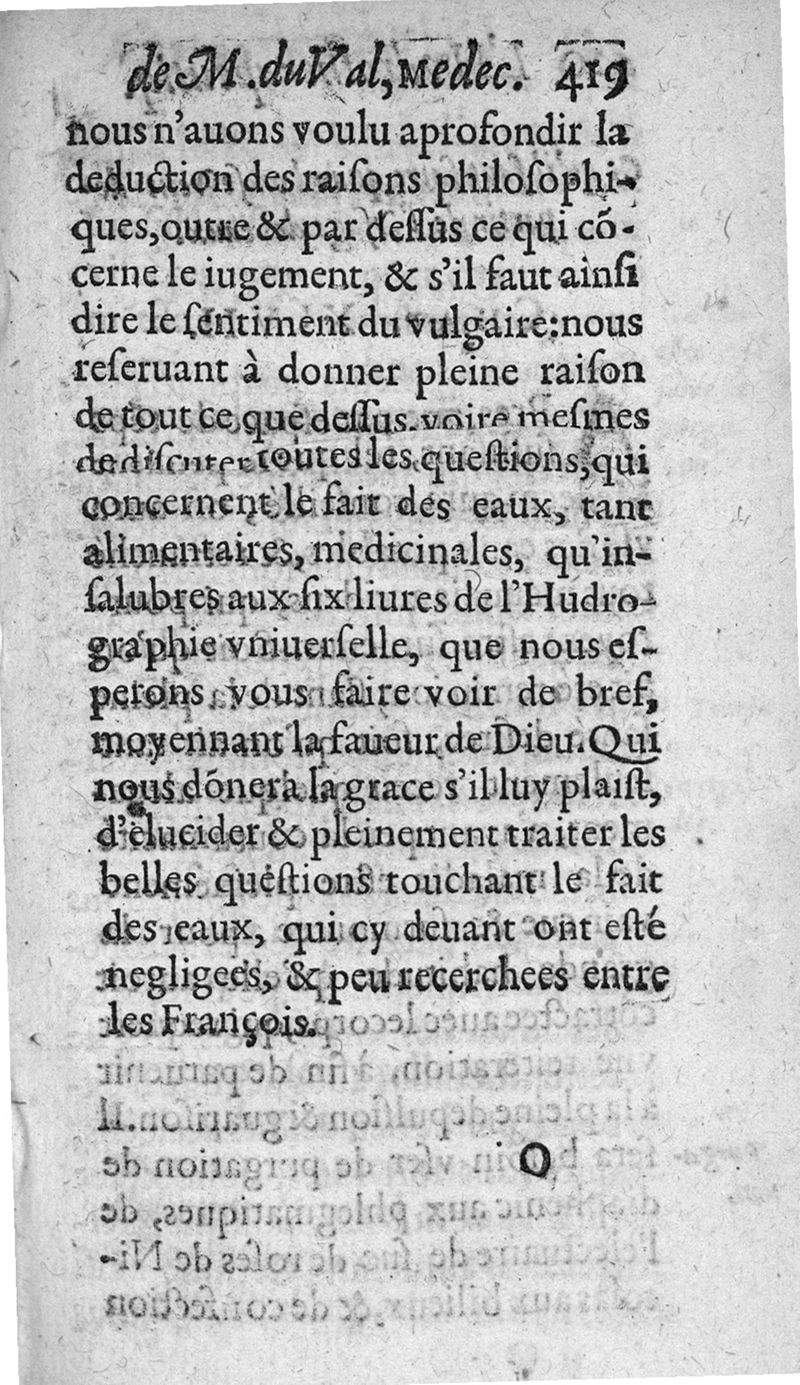 de M. du Val, Medec. 419
nous n'auons voulu aprofondir la
deduction des raiſons philoſophi-
ques, outre & par deſſus ce qui cõ-
cerne le iugement, & s'il faut ainſi
dire le ſentiment du vulgaire: nous
reſeruant à donner pleine raiſon
de tout ce que deſſus. voire meſmes
de diſcuter toutes les queſtions, qui
concernent le fait des eaux, tant
alimentaires, medicinales, qu'in-
ſalubres aux ſix liures de l'Hudro-
graphie vniuerſelle, que nous eſ-
perons vous faire voir de bref,
moyennant la faueur de Dieu. Qui
nous dõnera la grace s'il luy plaiſt,
d'elucider & pleinement traiter les
belles queſtions touchant le fait
des eaux, qui cy deuant ont eſté
negligees, & peu recerchees entre
les François.
O